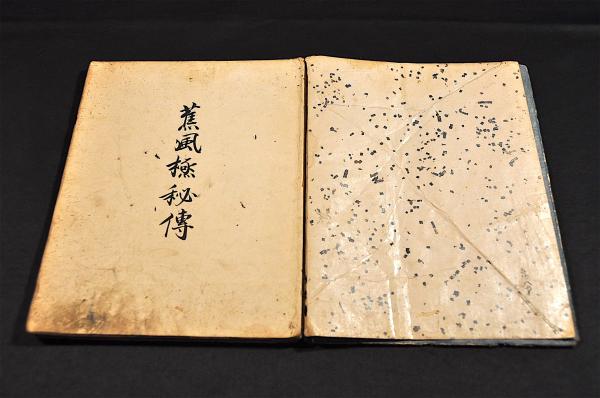 蕉風極秘傳